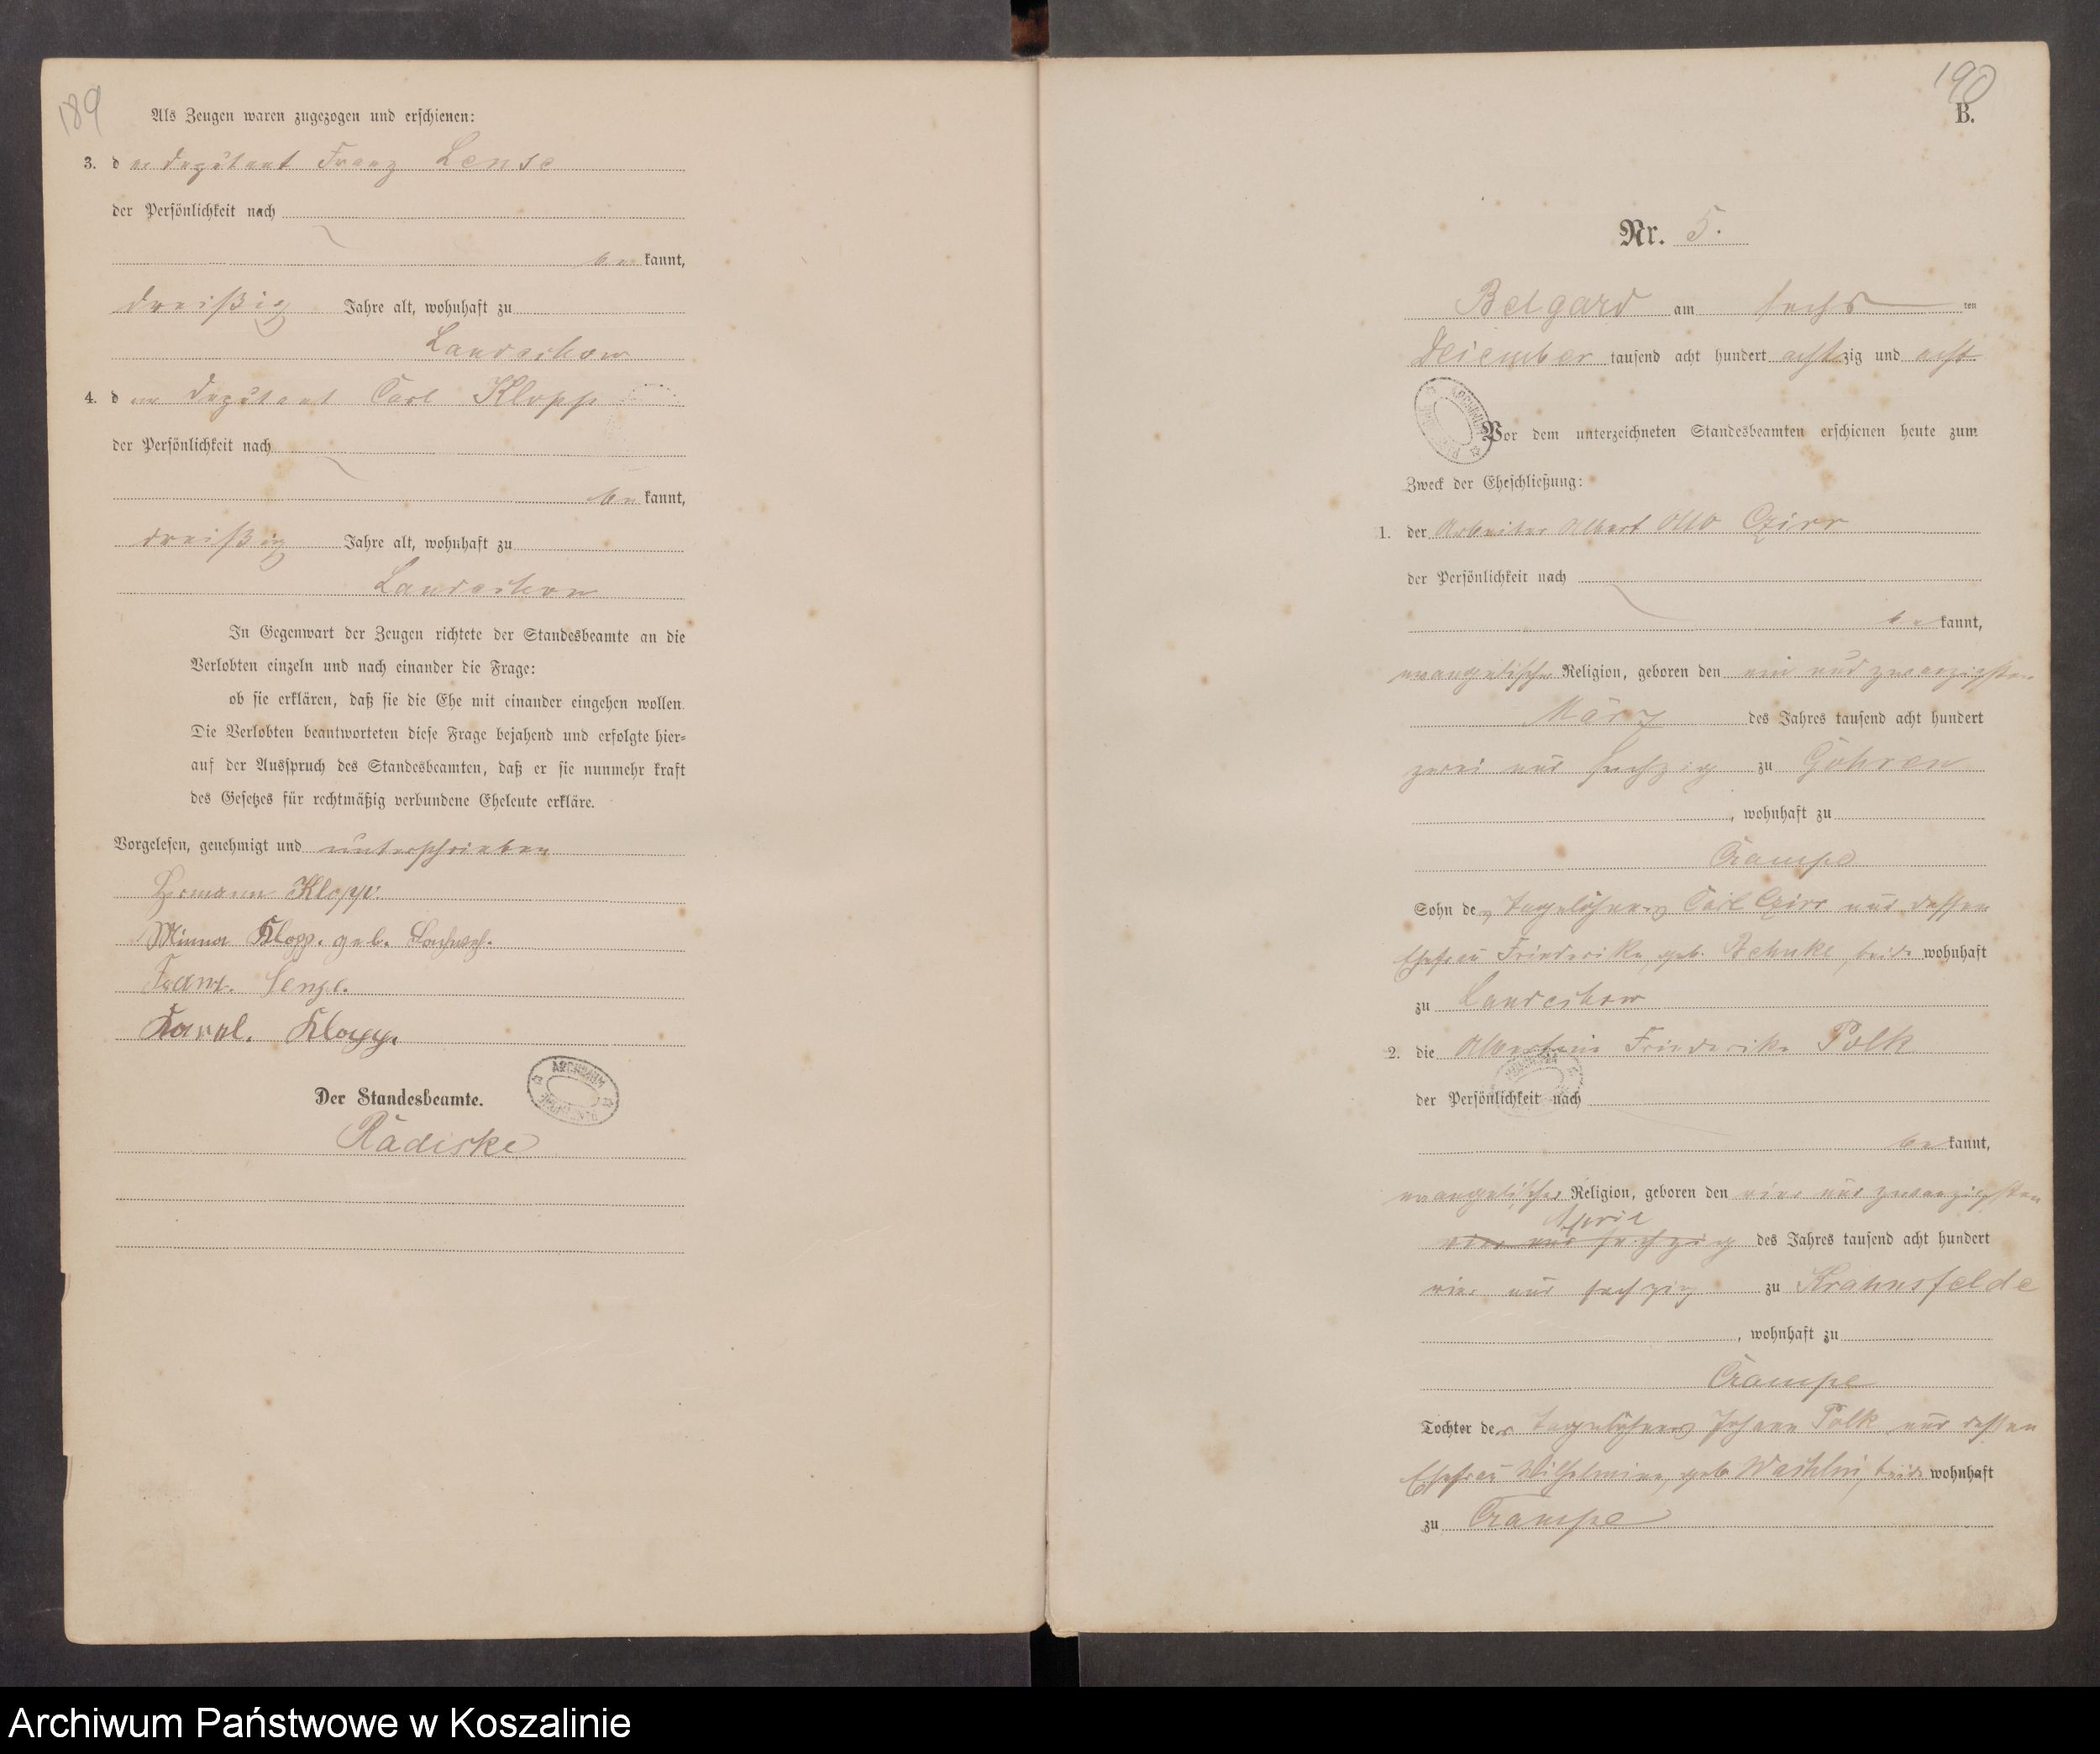 189
Als Zeugen waren zugezogen und erschienen:
3. der Deputant Franz Lense
der Persönlichkeit nach
be kannt,
dreißig Jahre alt, wohnhaft zu
Landechow
4. der Deputant Carl Klopp
der Persönlichkeit nach
be kannt,
dreißig Jahre alt, wohnhaft zu
Landechow
In Gegenwart der Zeugen richtete der Standesbeamte an die
Verlobten einzeln und nach einander die Frage:
ob sie erklären, daß sie die Ehe mit einander eingehen wollen.
Die Verlobten beantworteten diese Frage bejahend und erfolgte hier=
auf der Ausspruch des Standesbeamten, daß er sie nunmehr kraft
des Gesetzes für rechtmäßig verbundene Eheleute erkläre.
Vorgelesen, genehmigt und unterschrieben
Hermann Klopp.
Minna Klopp. geb.
Franz.
Karl. Klopp.
Der Standesbeamte.
ARCHIWUM
Radiske
190
B.
Nr. 5.
Belgard am sechs ten
Dezember tausend acht hundert achtzig und acht
ARCHIWUM
Vor dem unterzeichneten Standesbeamten erschienen heute zum
Zweck der Eheschließung:
1. der Arbeiter Albert Otto Czirr
der Persönlichkeit nach
be kannt,
evangelischer Religion, geboren den ein und zwanzigsten
März des Jahres tausend acht hundert
zwei und sechzig zu Göhren
, wohnhaft zu
Crampe
Sohn des Tagelöhners Carl Czirr und dessen
Ehefrau Friederike, geb. beide wohnhaft
zu Landechow
2. die Albertine Friederike Polk
der Persönlichkeit nach
be kannt,
evangelischer Religion, geboren den vier und zwanzigsten
April
vier und sechzig des Jahres tausend acht hundert
vier und sechzig zu Krahnsfelde
, wohnhaft zu
Crampe
Tochter des Tagelöhners Johann Polk und dessen
Ehefrau Wilhelmine, geb. beide wohnhaft
zu Crampe
Archiwum Państwowe w Koszalinie